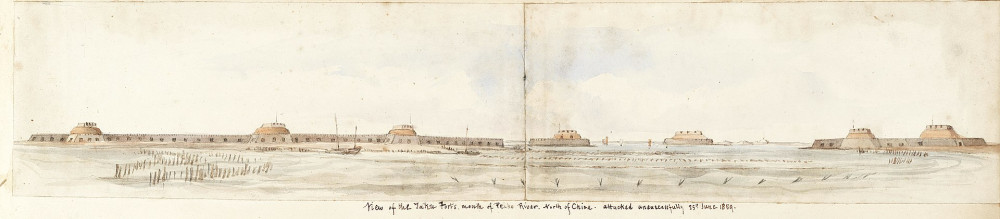 View of the Takoo Forts. mouth of Peiho River. North of China. attacked unsuccessfully 25th June 1859.